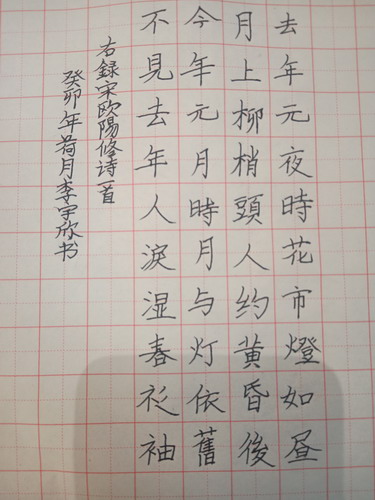 去年元夜時花市燈如昼
月上柳梢頭人约黄昏後
今年元月時月与灯依舊
不見去年人淚湿春衫袖
右録宋欧陽修诗一首
癸卯年荷月李宇欣书